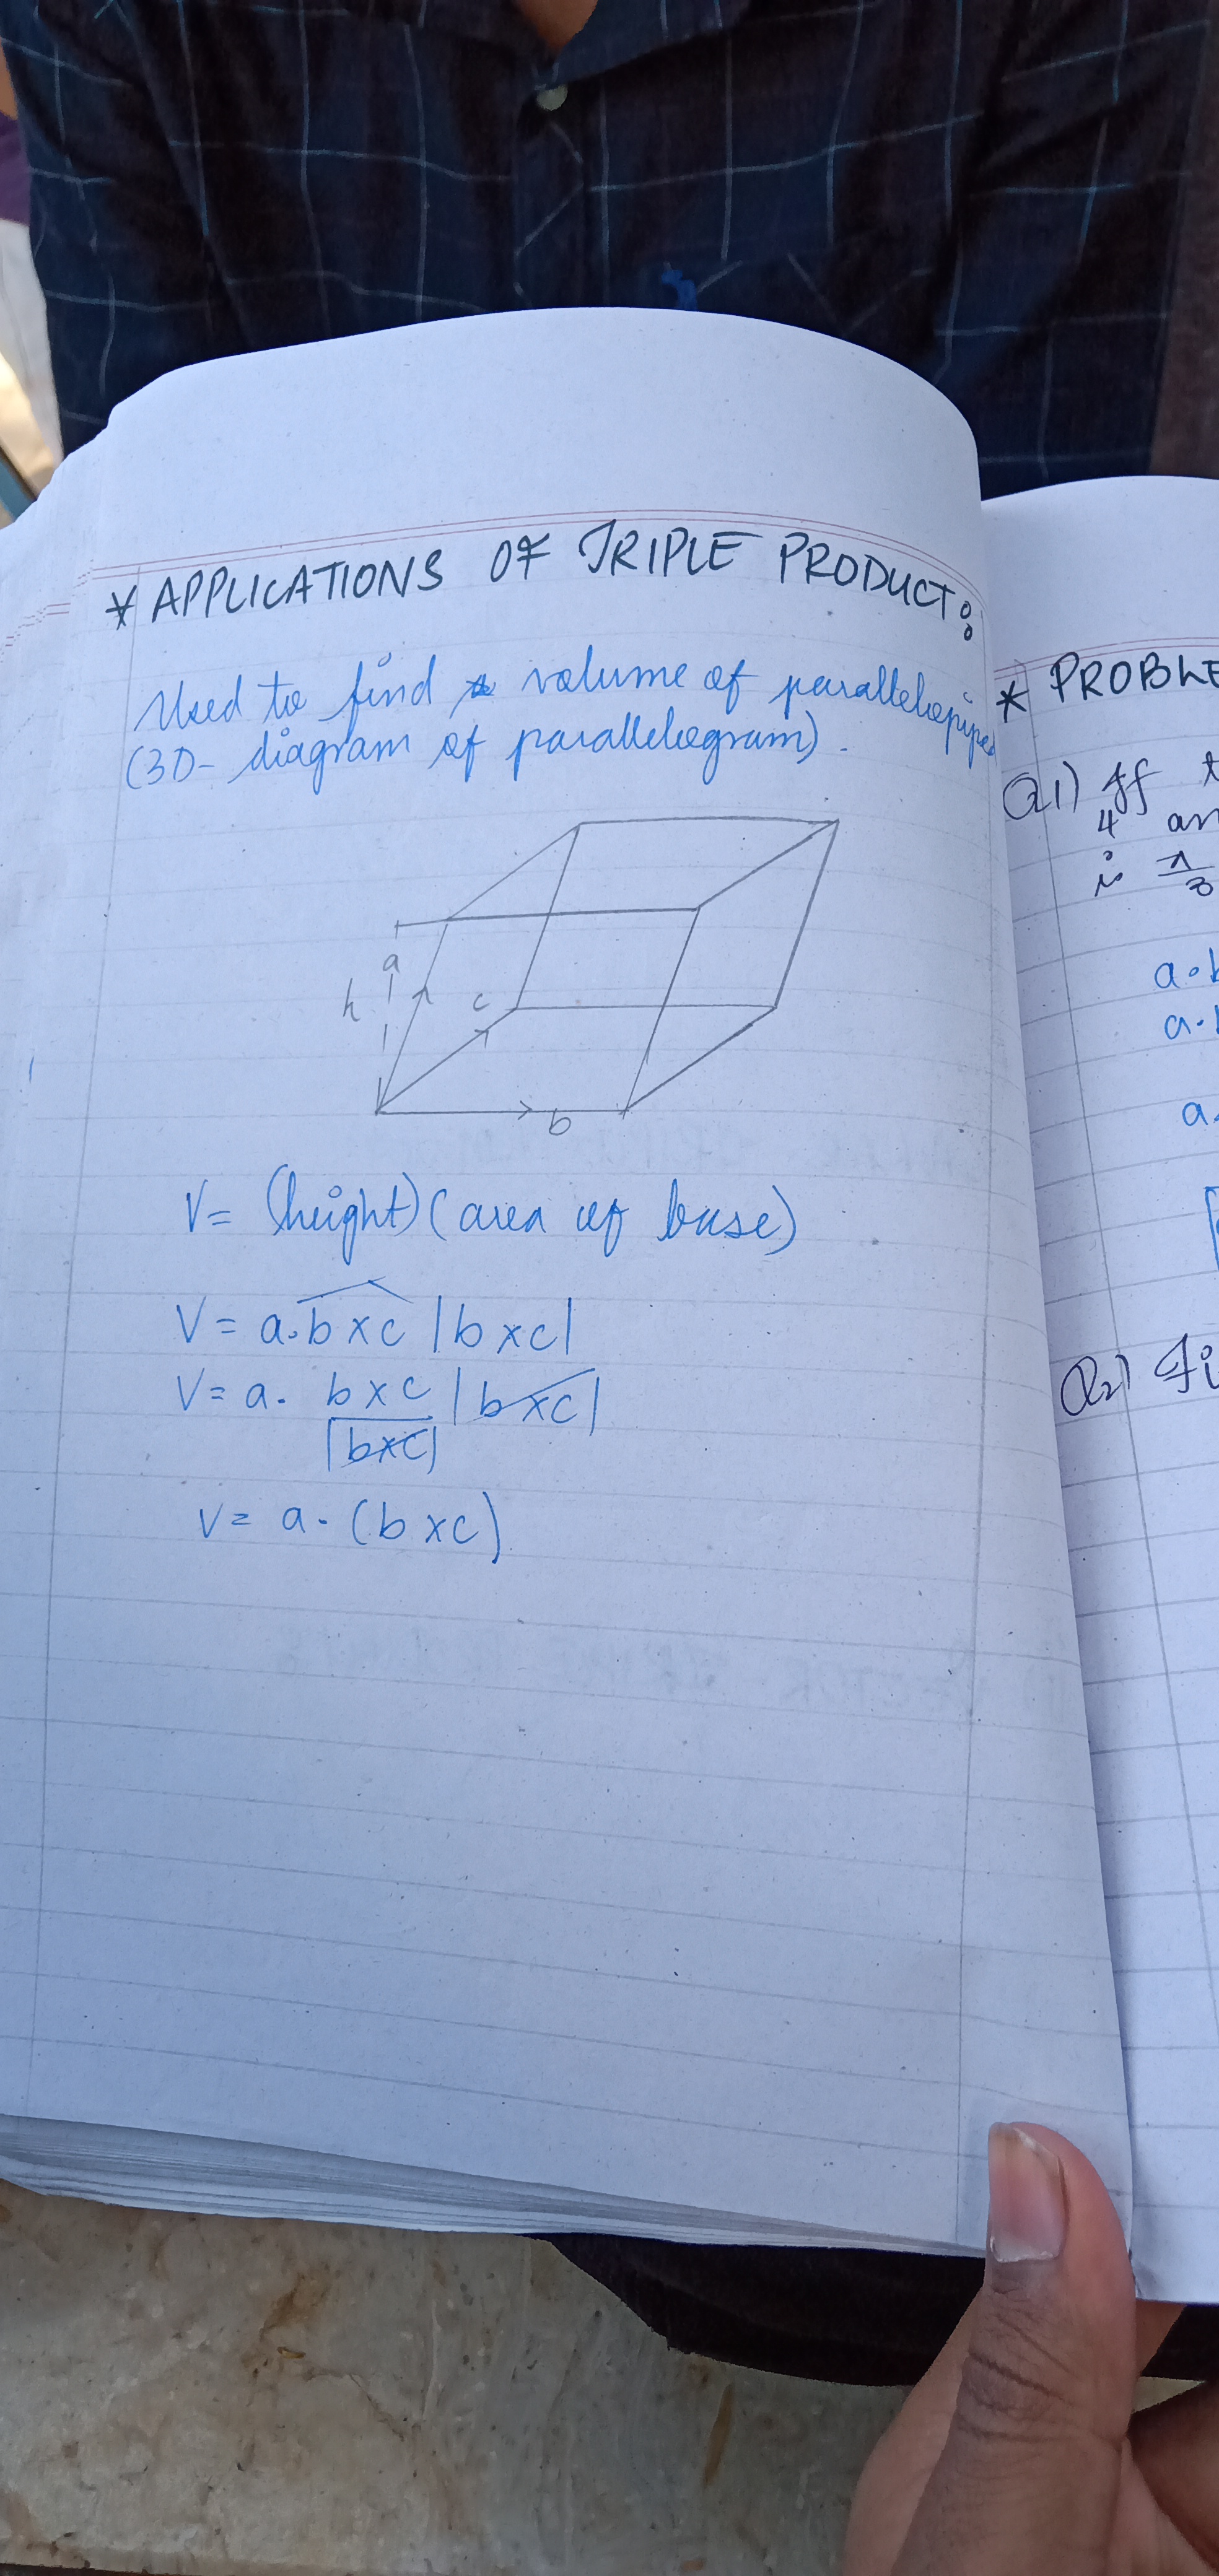 * APPLICATIONS OF TRIPLE PRODUCT:
Used to find volume of parallelopiped
(3D- diagram of parallelogram).
a
h
c
b
V= (height)(area of base)
V= a.b×c |b×c|
V= a. b×c |b×c|
|b×c|
V= a. (b×c)
* PROBLE
Q1) If t
4 an
is π/3
a.b
a.b
a.
Q2) Fi